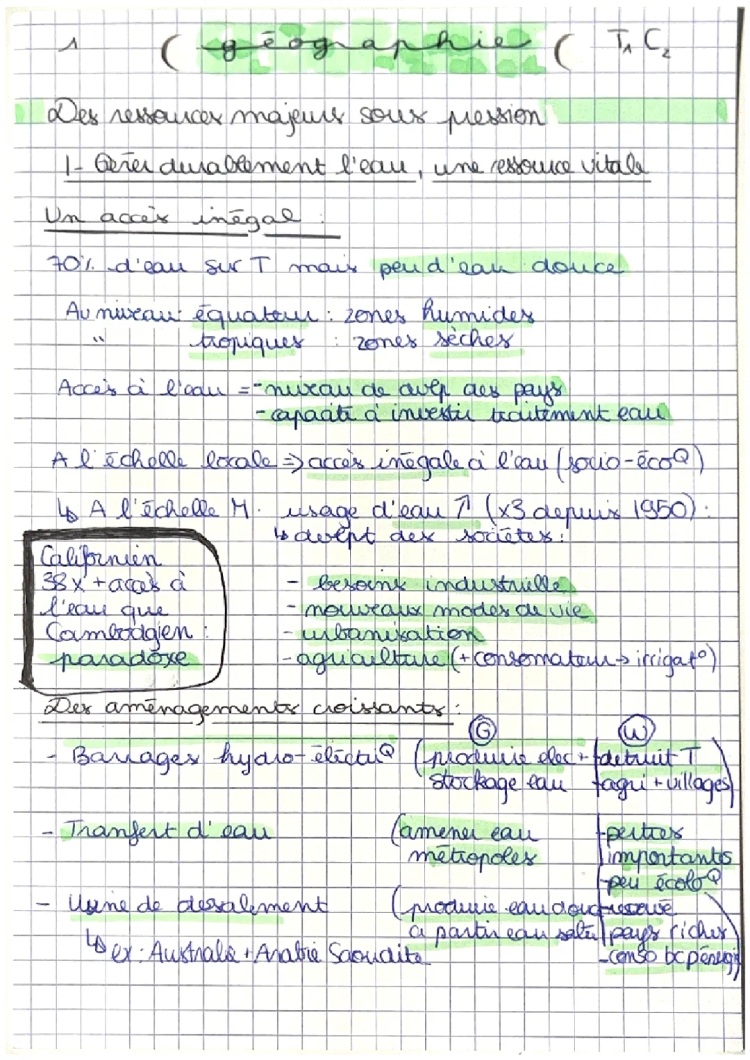 1 (géographie ( T1 C2
Des ressources majeurs sous pression
1- Gérer durablement l'eau, une ressource vitale
Un accès inégal :
70% d'eau sur T mais peu d'eau douce
Au niveau équateur : zones humides
" tropiques : zones sèches
Accès à l'eau = - niveau de dvlp des pays
- capacité à investir traitement eau
A l'échelle locale => accès inégale à l'eau (socio-écoQ)
↳ A l'échelle M. usage d'eau ↑ (x3 depuis 1950) :
↳ dvlpt des sociétés :
Californien
38x + accès à
l'eau que
Cambodgien :
paradoxe
- besoins industrielle
- nouveaux modes de vie
- urbanisation
- agriculture (+ consomateur → irrigat°)
Des aménagements croissants :
G W
- Barrages hydro-électriQ (produire elec + detruit T
stockage eau agri + villages)
- Tranfert d'eau (amener eau - pertres
métropoles importantes
- peu écoloQ
- Usine de désalement (produire eau douce
à partir eau salée pays riches
- conso bc
↳ ex : Australie + Arabie Saoudite